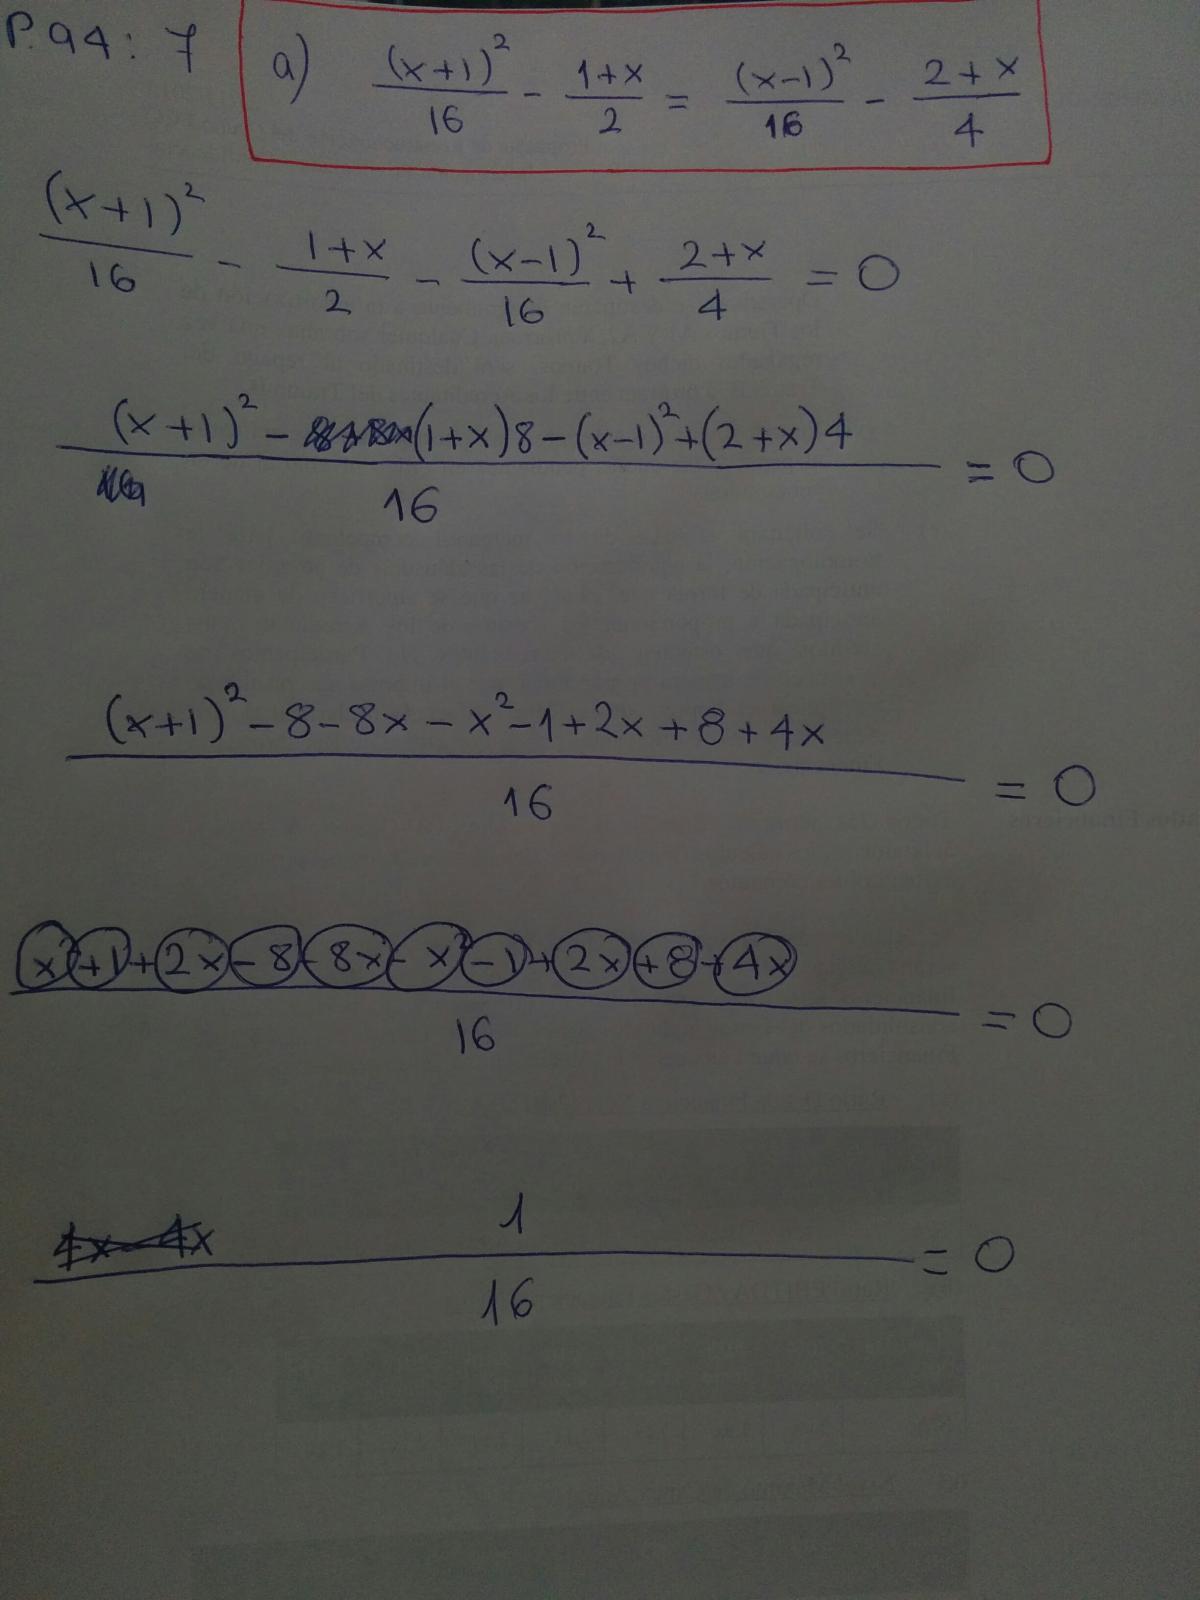 P. 94: 7 a) (x+1)²/16 - 1+x/2 = (x-1)²/16 - 2+x/4
(x+1)²/16 - 1+x/2 - (x-1)²/16 + 2+x/4 = 0
(x+1)² - (1+x)8 - (x-1)² + (2+x)4 / 16 = 0
(x+1)² - 8 - 8x - x² - 1 + 2x + 8 + 4x / 16 = 0
x² + 1 + 2x - 8 - 8x - x² - 1 + 2x + 8 + 4x / 16 = 0
4x - 4x 1/16 = 0